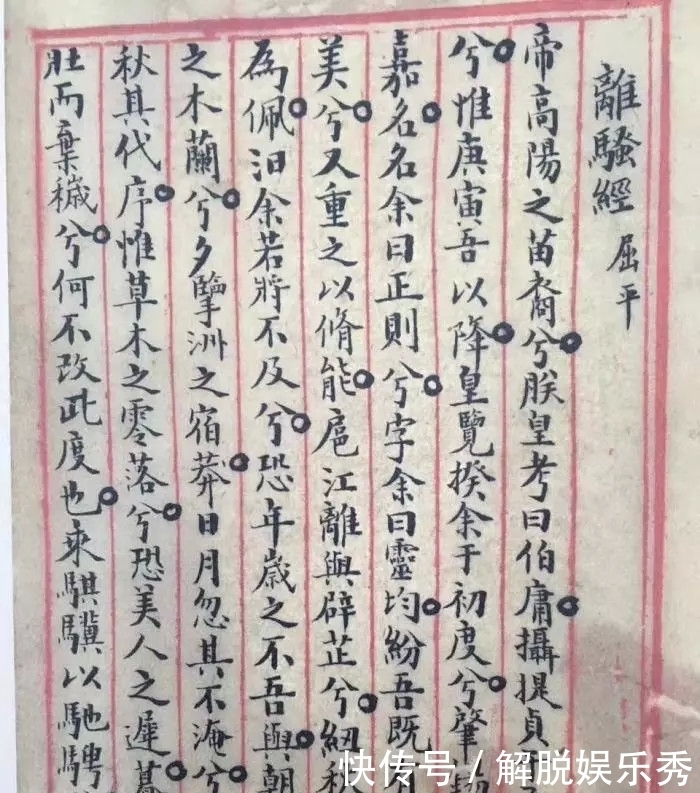 離騷經 屈平
帝高陽之苗裔兮。朕皇考曰伯庸。攝提貞
兮。惟庚寅吾以降。皇覽揆余于初度兮。肇
嘉名。名余曰正則兮。字余曰靈均。紛吾既
美兮。又重之以脩能。扈江離與辟芷兮。紉秋
為佩。汨余若將不及兮。恐年歲之不吾與。朝
之木蘭兮。夕擥洲之宿莽。日月忽其不淹兮。
秋其代序。惟草木之零落兮。恐美人之遲暮。
壯而棄穢兮。何不改此度也。乘騏驥以馳騁
快传号 / 解脱娱乐秀